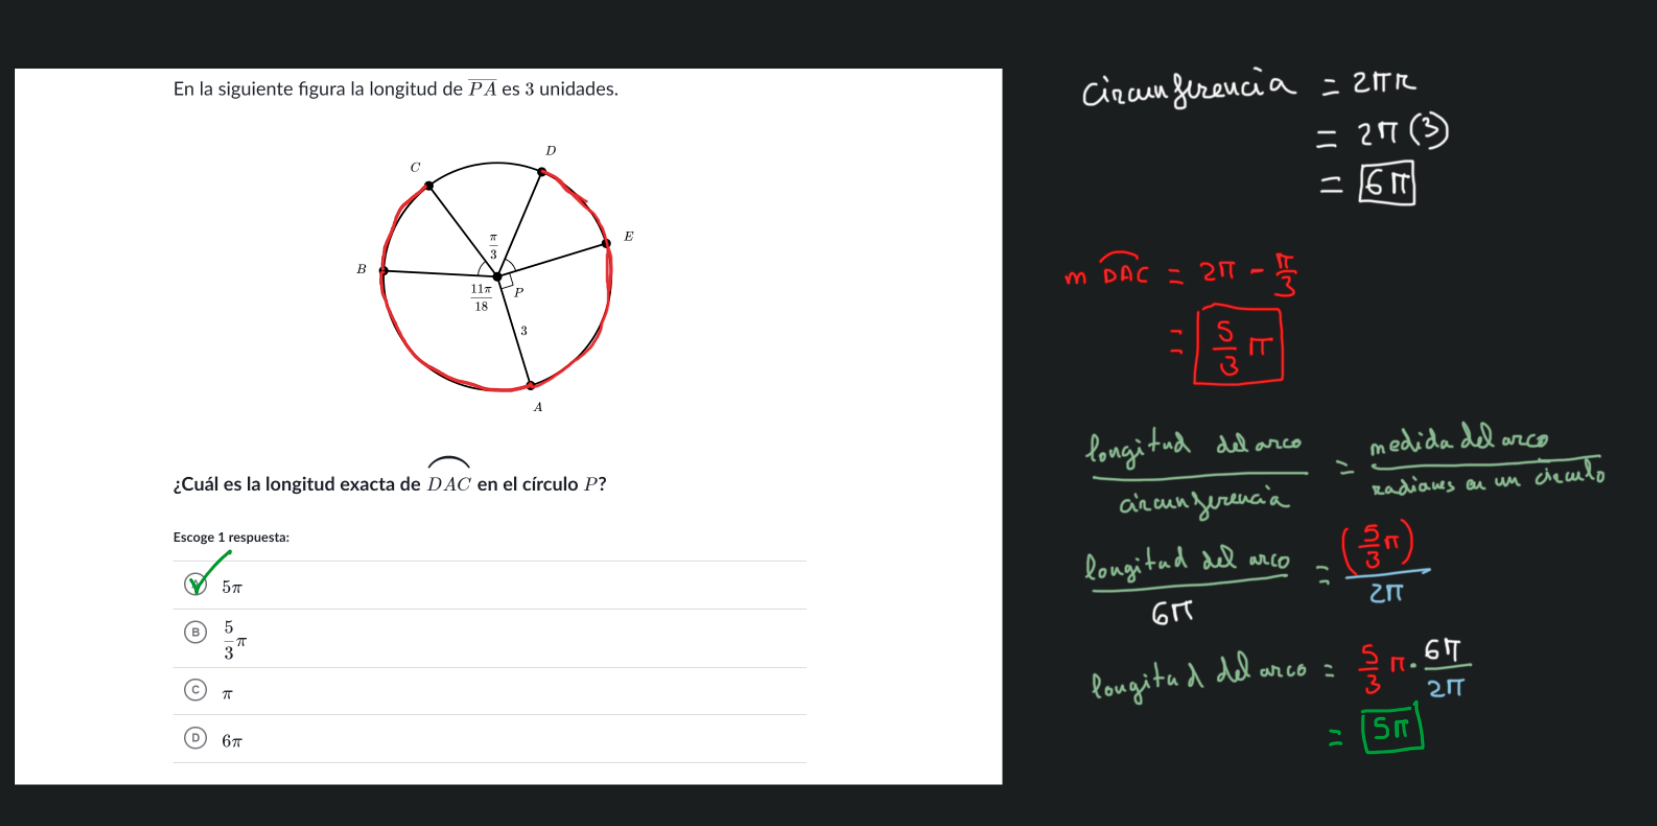 En la siguiente figura la longitud de PA es 3 unidades.
D
C
E
π/3
B
11π/18
P
3
A
¿Cuál es la longitud exacta de DAC en el círculo P?
Escoge 1 respuesta:
5π
B 5/3 π
C π
D 6π
circunferencia = 2πr
= 2π(3)
= 6π
m DAC = 2π - π/3
= 5/3 π
longitud del arco / circunferencia = medida del arco / radianes en un círculo
longitud del arco / 6π = (5/3 π) / 2π
longitud del arco = 5/3 π · 6π/2π
= 5π